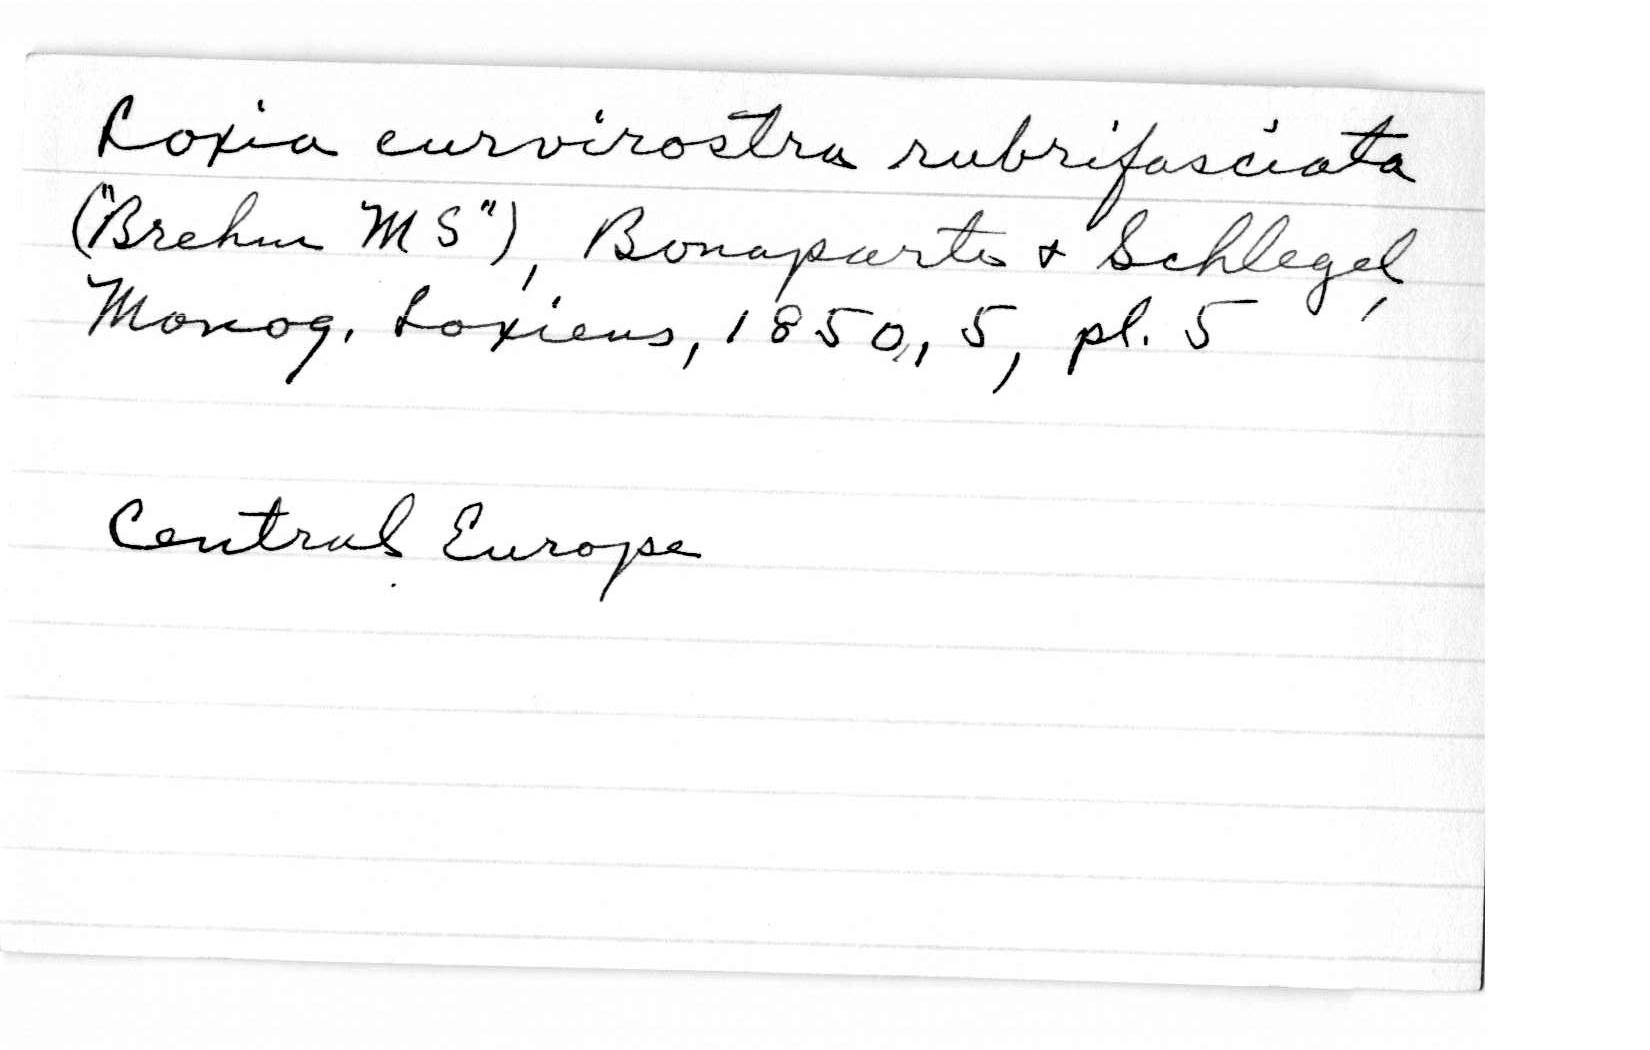 Loxia curvirostra rubrifasciata
("Brehm MS"), Bonaparte & Schlegel,
Monog. Loxiens, 1850, 5, pl. 5
Central Europe